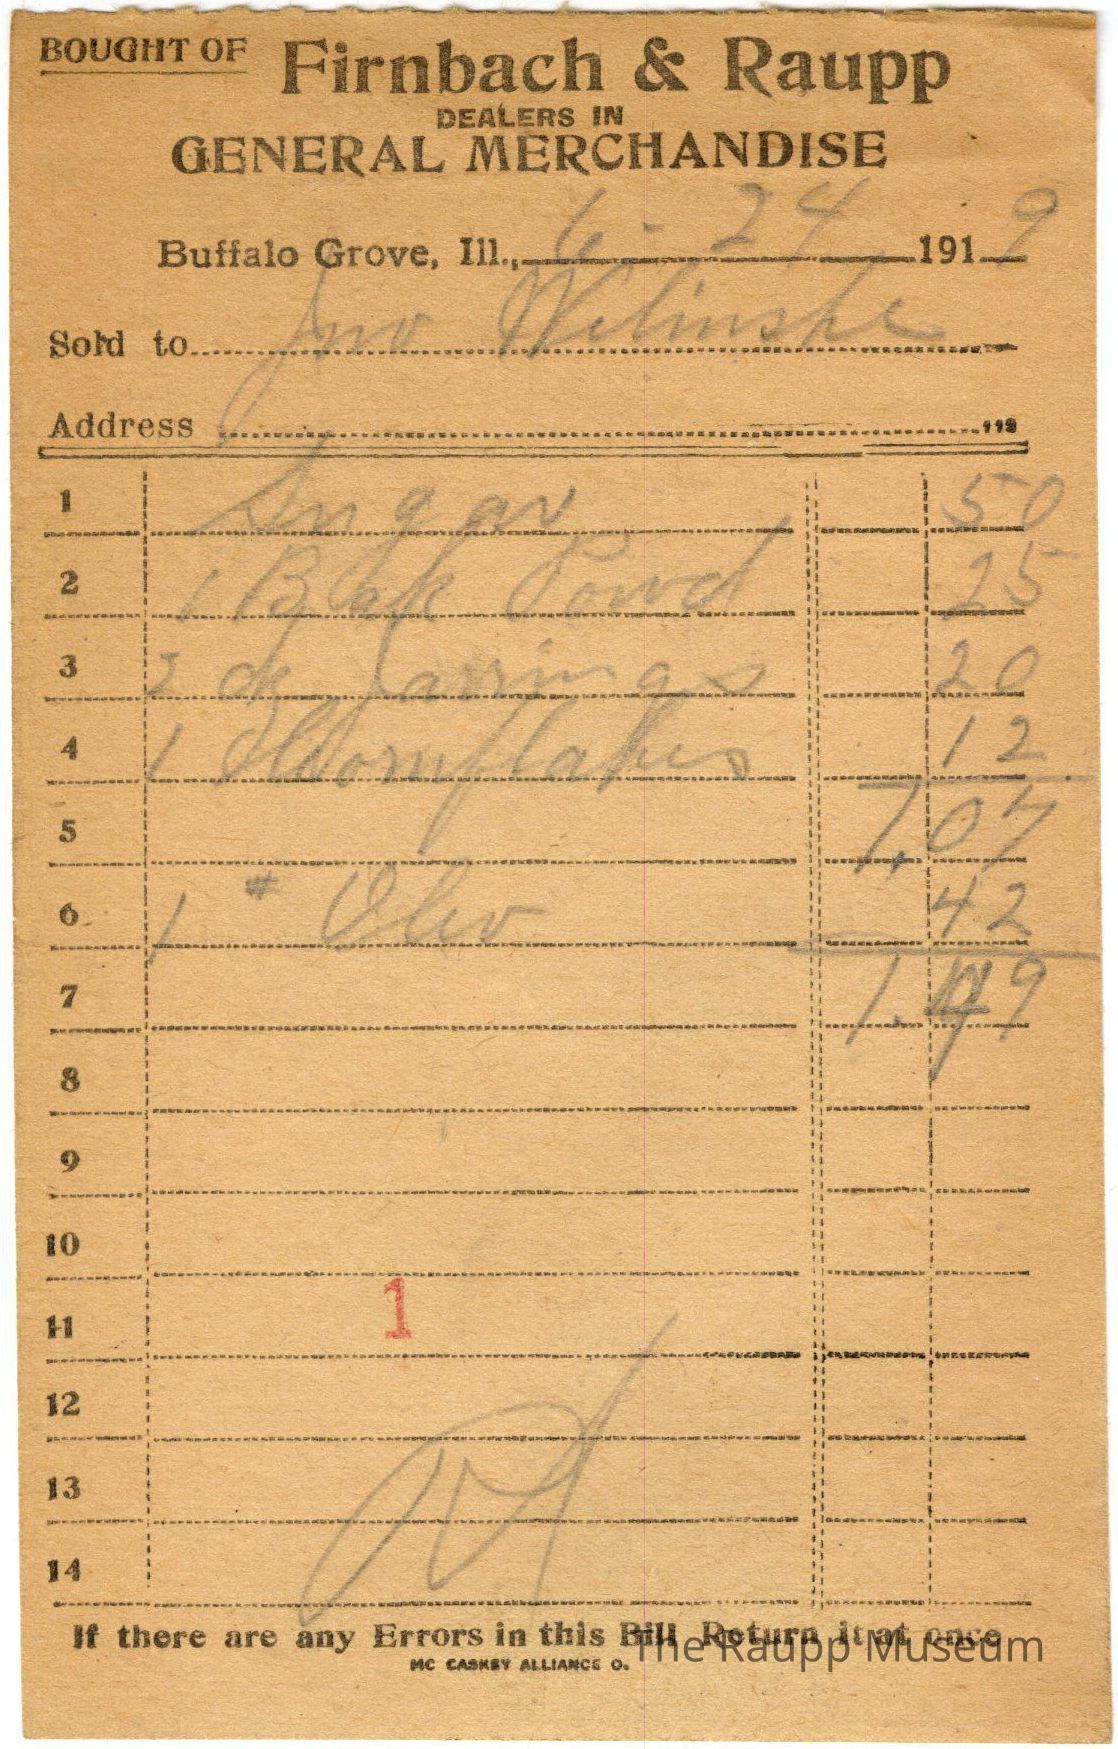 BOUGHT OF Firnbach & Raupp
DEALERS IN
GENERAL MERCHANDISE
Buffalo Grove, Ill., 6-24 1919
Sold to Jno Wilinske
Address
1 Sugar 50
2 1 Bak Powd 25
3 2 dz Jarrings 20
4 1 Cornflakes 12
5 1,07
6 1 # Oleo 42
7 1.49
8
9
10
11 1
12
13
14
If there are any Errors in this Bill Return it at once
MC CASKEY ALLIANCE O.
The Raupp Museum